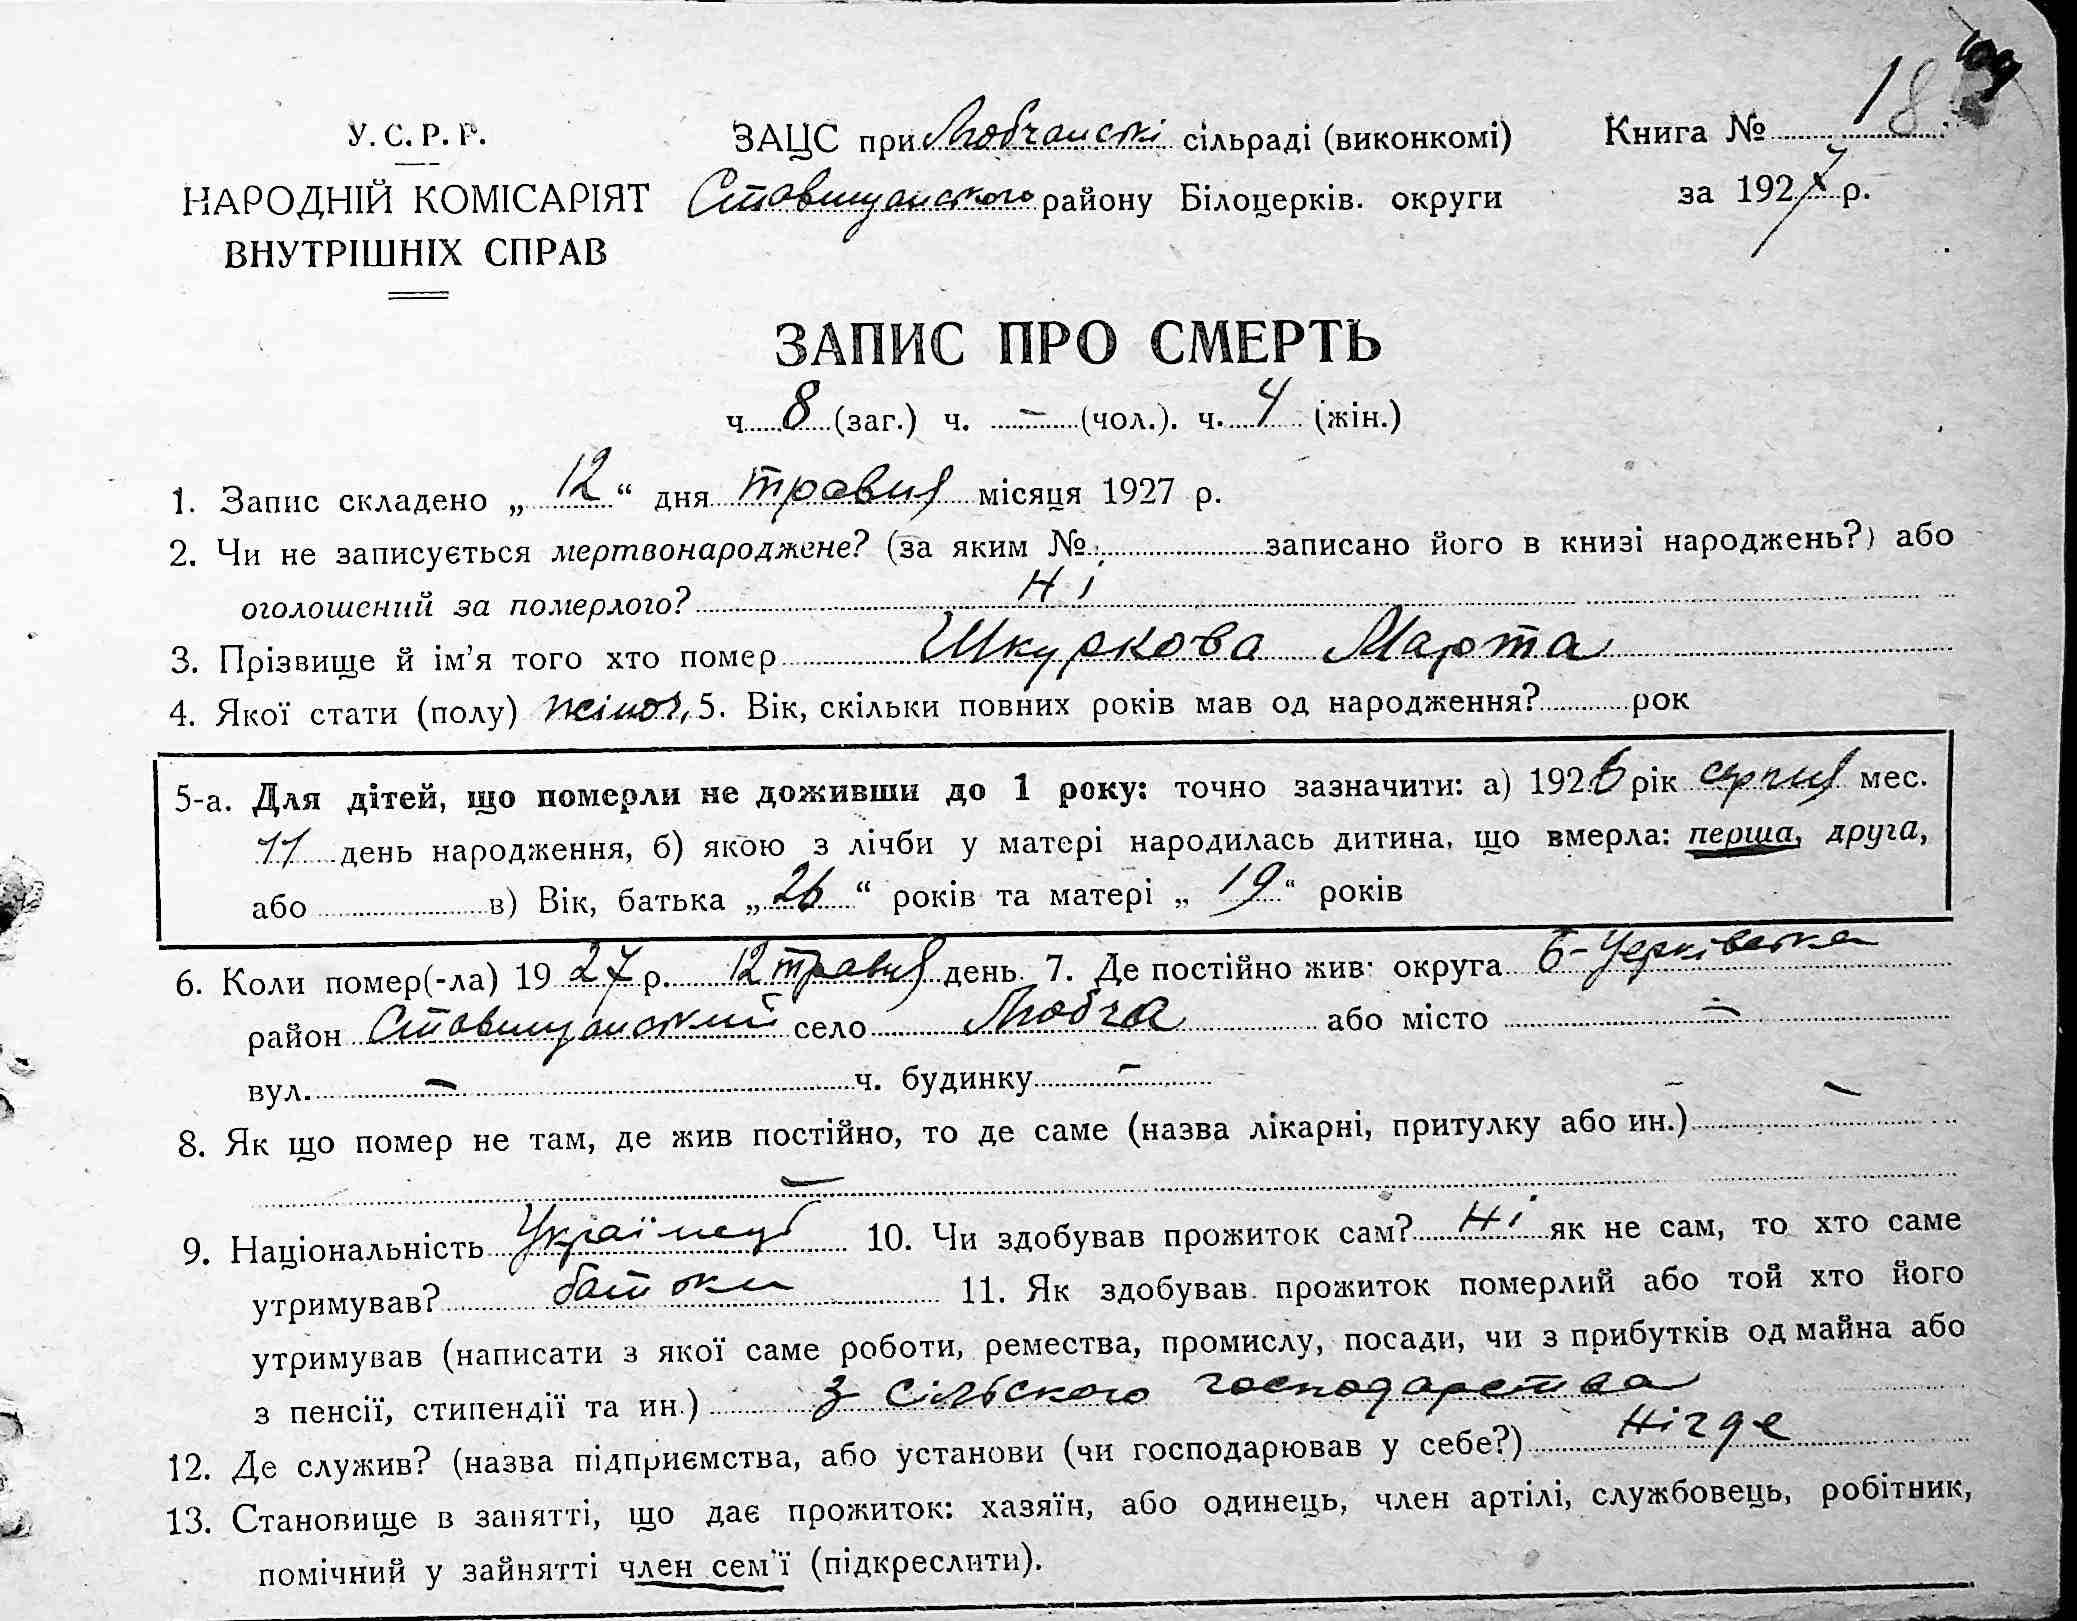 У.С.Р.Р.
НАРОДНІЙ КОМІСАРІЯТ
ВНУТРІШНІХ СПРАВ
ЗАЦС при Любчанскі сільраді (виконкомі)
Ставищанского району Білоцерків. округи
Книга № 18
за 1927 р.
ЗАПИС ПРО СМЕРТЬ
ч. 8 (заг.) ч. – (чол.). ч. 4 (жін.)
1. Запис складено „ 12 “ дня травня місяця 1927 р.
2. Чи не записується мертвонароджене? (за яким № записано його в книзі народжень?) або
оголошений за померлого? Ні
3. Прізвище й ім’я того хто помер Шкуркова Марта
4. Якої стати (полу) жіноч, 5. Вік, скільки повних років мав од народження? рок
5-а. Для дітей, що померли не доживши до 1 року: точно зазначити: а) 1926 рік серпня мес.
11 день народження, б) якою з лічби у матері народилась дитина, що вмерла: перша, друга,
або в) Вік, батька „ 26 “ років та матері „ 19 “ років
6. Коли помер(-ла) 1927 р. 12 травня день. 7. Де постійно жив: округа Б-Церківська
район Ставищанский село Любча або місто –
вул. – ч. будинку –
8. Як що помер не там, де жив постійно, то де саме (назва лікарні, притулку або ин.) –
–
9. Національність Українець 10. Чи здобував прожиток сам? Ні як не сам, то хто саме
утримував? батьки 11. Як здобував прожиток померлий або той хто його
утримував (написати з якої саме роботи, ремества, промислу, посади, чи з прибутків од майна або
з пенсії, стипендії та ин.) з сільского господарства
12. Де служив? (назва підприємства, або установи (чи господарював у себе?) Нігде
13. Становище в занятті, що дає прожиток: хазяїн, або одинець, член артілі, службовець, робітник,
помічний у зайнятті член сем’ї (підкреслити).